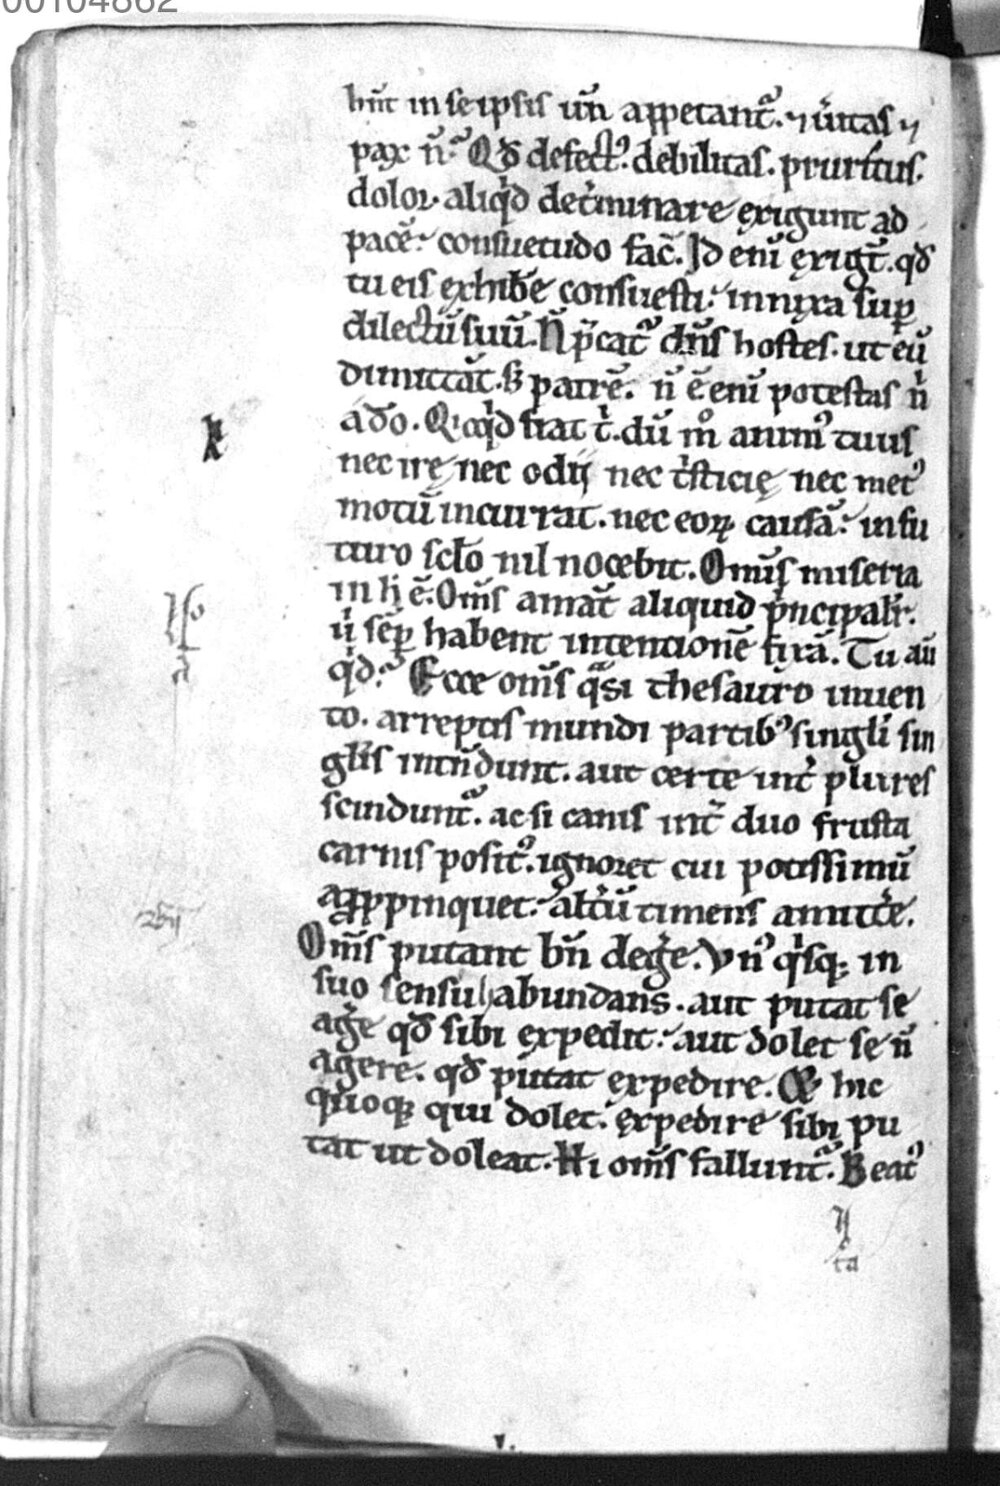 00104862
hn̄t in se ipsis un̄ appetant᷑. ⁊ ūitas ⁊
pax n̄.᷑ Qd̄ defect᷒. debilitas. pruritus.
dolor. aliqͥd det̾minare exigunt ad
pacē. consuetudo fac̄. Id enī exigt̄. qd̄
tu eis exhibe consuesti. innixa sup̲
dilectū suū. N̄ p̄cat᷑ dn̄s hostes. ut eū
dimittāt. s; patrē. n̄ ē enī potestas nͥ
a do. Qͥcqͥd fiat tͥ. dū m̊ anim᷒ tuus
nec irę nec odij nec tͥsticię nec met᷒
motū incurrat. nec eoꝝ causā. in fu
turo sclo nil nocebit. Om̄is miseria
in h̄ ē. Om̄s amāt aliquid pͥncipalr̄.
ij sep̄ habent intentionē fixā. Tu aū
qͥd. Ecce om̄s qᷓsi thesauro inuen
to. arreptis mundi partib᷒ singli sin
glis intn̄dunt. aut certe int̾ plures
scindunt᷑. ac si canis int̾ duo frusta
carnis posit᷒. ignoret cui potissimū
appropinquet. alt̾ū timens amitt̾e.
Om̄s putant bn̄ deg̾e. Vn᷒ qͥsq; in
suo sensu habundans. aut putat se
ag̾e qd̄ sibi expedit. aut dolet se n̄
agere. qd̄ putat expedire. Et hic
quoq; qui dolet. expedire sibi pu
tat ut doleat. Hi om̄s fallunt᷑. Beat᷒
ta
v.